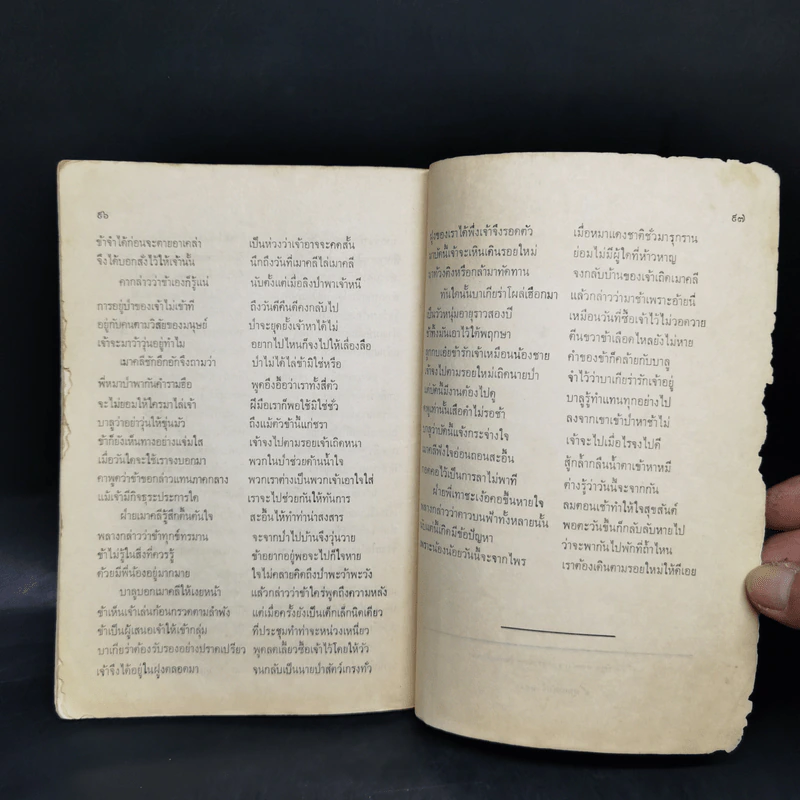 ๙๖
ข้าจำได้ก่อนจะตายอาเคล่า เป็นห่วงว่าเจ้าอาจจะคดสั้น
จึงได้บอกสั่งไว้ให้เจ้านั้น นึกถึงวันที่เมาคลีไล่เมาคลี
คากล่าวว่าข้าเองก็รู้แน่ นับตั้งแต่เมื่อลิงป่าพาเจ้าหนี
การอยู่ป่าของเจ้าไม่เข้าที ถึงวันดีคืนดีคงกลับไป
อยู่กับคนตามวิสัยของมนุษย์ ป่าจะยุดยั้งเจ้าหาได้ไม่
เจ้าจะมาว้าวุ่นอยู่ทำไม อยากไปไหนก็จงไปให้เลื่องลือ
เมาคลีชักอึกอักจึงถามว่า ป่าไม่ได้ไล่ข้ามิใช่หรือ
พี่หมาป่าพากันคำรามฮือ พูดอึงอื้อว่าเราทั้งสี่ตัว
จะไม่ยอมให้ใครมาไล่เจ้า ฝีมือเราก็พอใช้มิใช่ชั่ว
บาลูว่าอย่าวุ่นให้ขุ่นมัว ถึงแม้ตัวข้านี้แก่ชรา
ข้าก็ยังเห็นทางอย่างแจ่มใส เจ้าจงไปตามรอยเจ้าเถิดหนา
เมื่อวันใดจะใช้เราจงบอกมา พวกในป่าช่วยด้านน้ำใจ
คาพูดว่าข้าขอกล่าวแทนภาคกลาง พวกเราต่างเป็นพวกเจ้าเอาใจใส่
แม้เจ้ามีกิจธุระประการใด เราจะไปช่วยกันให้ทันการ
ฝ่ายเมาคลีรู้สึกตื้นตันใจ สะอื้นไห้ทำท่าน่าสงสาร
พลางกล่าวว่าข้าทุกข์ทรมาน จะจากป่าไปบ้านจึงวุ่นวาย
ข้าไม่รู้ในสิ่งที่ควรรู้ ข้าอยากอยู่พอจะไปก็ใจหาย
ด้วยมีพี่น้องอยู่มากมาย ใจไม่คลายคิดถึงป่าพะว้าพะวัง
บาลูบอกเมาคลีให้เงยหน้า แล้วกล่าวว่าข้าใคร่พูดถึงความหลัง
ข้าเห็นเจ้าเล่นก้อนกรวดตามลำพัง แต่เมื่อครั้งยังเป็นเด็กเล็กนิดเดียว
ข้าเป็นผู้เสนอเจ้าให้เข้ากลุ่ม ที่ประชุมทำท่าจะหน่วงเหนี่ยว
บาเกียร่าต้องรับรองอย่างปราดเปรียว พูดลดเลี้ยวซื้อเจ้าไว้โดยให้วัว
เจ้าจึงได้อยู่ในฝูงตลอดมา จนกลับเป็นนายป่าสัตว์เกรงทั่ว
๙๗
ฝูงของเราได้พึ่งเจ้าจึงรอดตัว เมื่อหมาแดงชาติชั่วมารุกราน
มาบัดนี้เจ้าจะเหินเดินรอยใหม่ ย่อมไม่มีผู้ใดที่ห้าวหาญ
มาท้วงติงหรือกล้ามาทัดทาน จงกลับบ้านของเจ้าเถิดเมาคลี
ทันใดนั้นบาเกียร่าโผล่เฮือกมา แล้วกล่าวว่ามาช้าเพราะอ้ายนี่
เป็นวัวหนุ่มอายุราวสองปี เหมือนวันที่ซื้อเจ้าไว้ไม่วอดวาย
ข้าทิ้งมันเอาไว้ใต้พฤกษา ตีนขวาข้าเลือดไหลยังไม่หาย
ลูกกบเอ๋ยข้ารักเจ้าเหมือนน้องชาย คำของข้าก็คล้ายกับบาลู
เจ้าจงไปตามรอยใหม่เถิดนายป่า จำไว้ว่าบาเกียร่ารักเจ้าอยู่
แต่บัดนี้มีงานต้องไปดู บาลูรู้ทำแทนทุกอย่างไป
พูดเท่านั้นเสือดำไม่รอช้า ลงจากเขาเข้าป่าหาช้าไม่
บาลูว่าบัดนี้แจ้งกระจ่างใจ เจ้าจะไปเมื่อไรจงไปดี
เมาคลีฟังใจอ่อนถอนสะอื้น สู้กล้ำกลืนน้ำตาเข้าหาหมี
กอดคอไว้เป็นการลาไม่พาที ต่างรู้ว่าวันนี้จะจากกัน
ฝ่ายพี่เทาชะเง้อคอขึ้นหายใจ ลมตอนเช้าทำให้ใจสุขสันต์
พลางกล่าวว่าดาวบนฟ้าทั้งหลายนั้น พอตะวันขึ้นก็กลับลับหายไป
นับแต่นี้เกิดมีข้อปัญหา ว่าจะพากันไปพักที่ถ้ำไหน
เพราะน้องน้อยวันนี้จะจากไพร เราต้องเดินตามรอยใหม่ให้ดีเอย